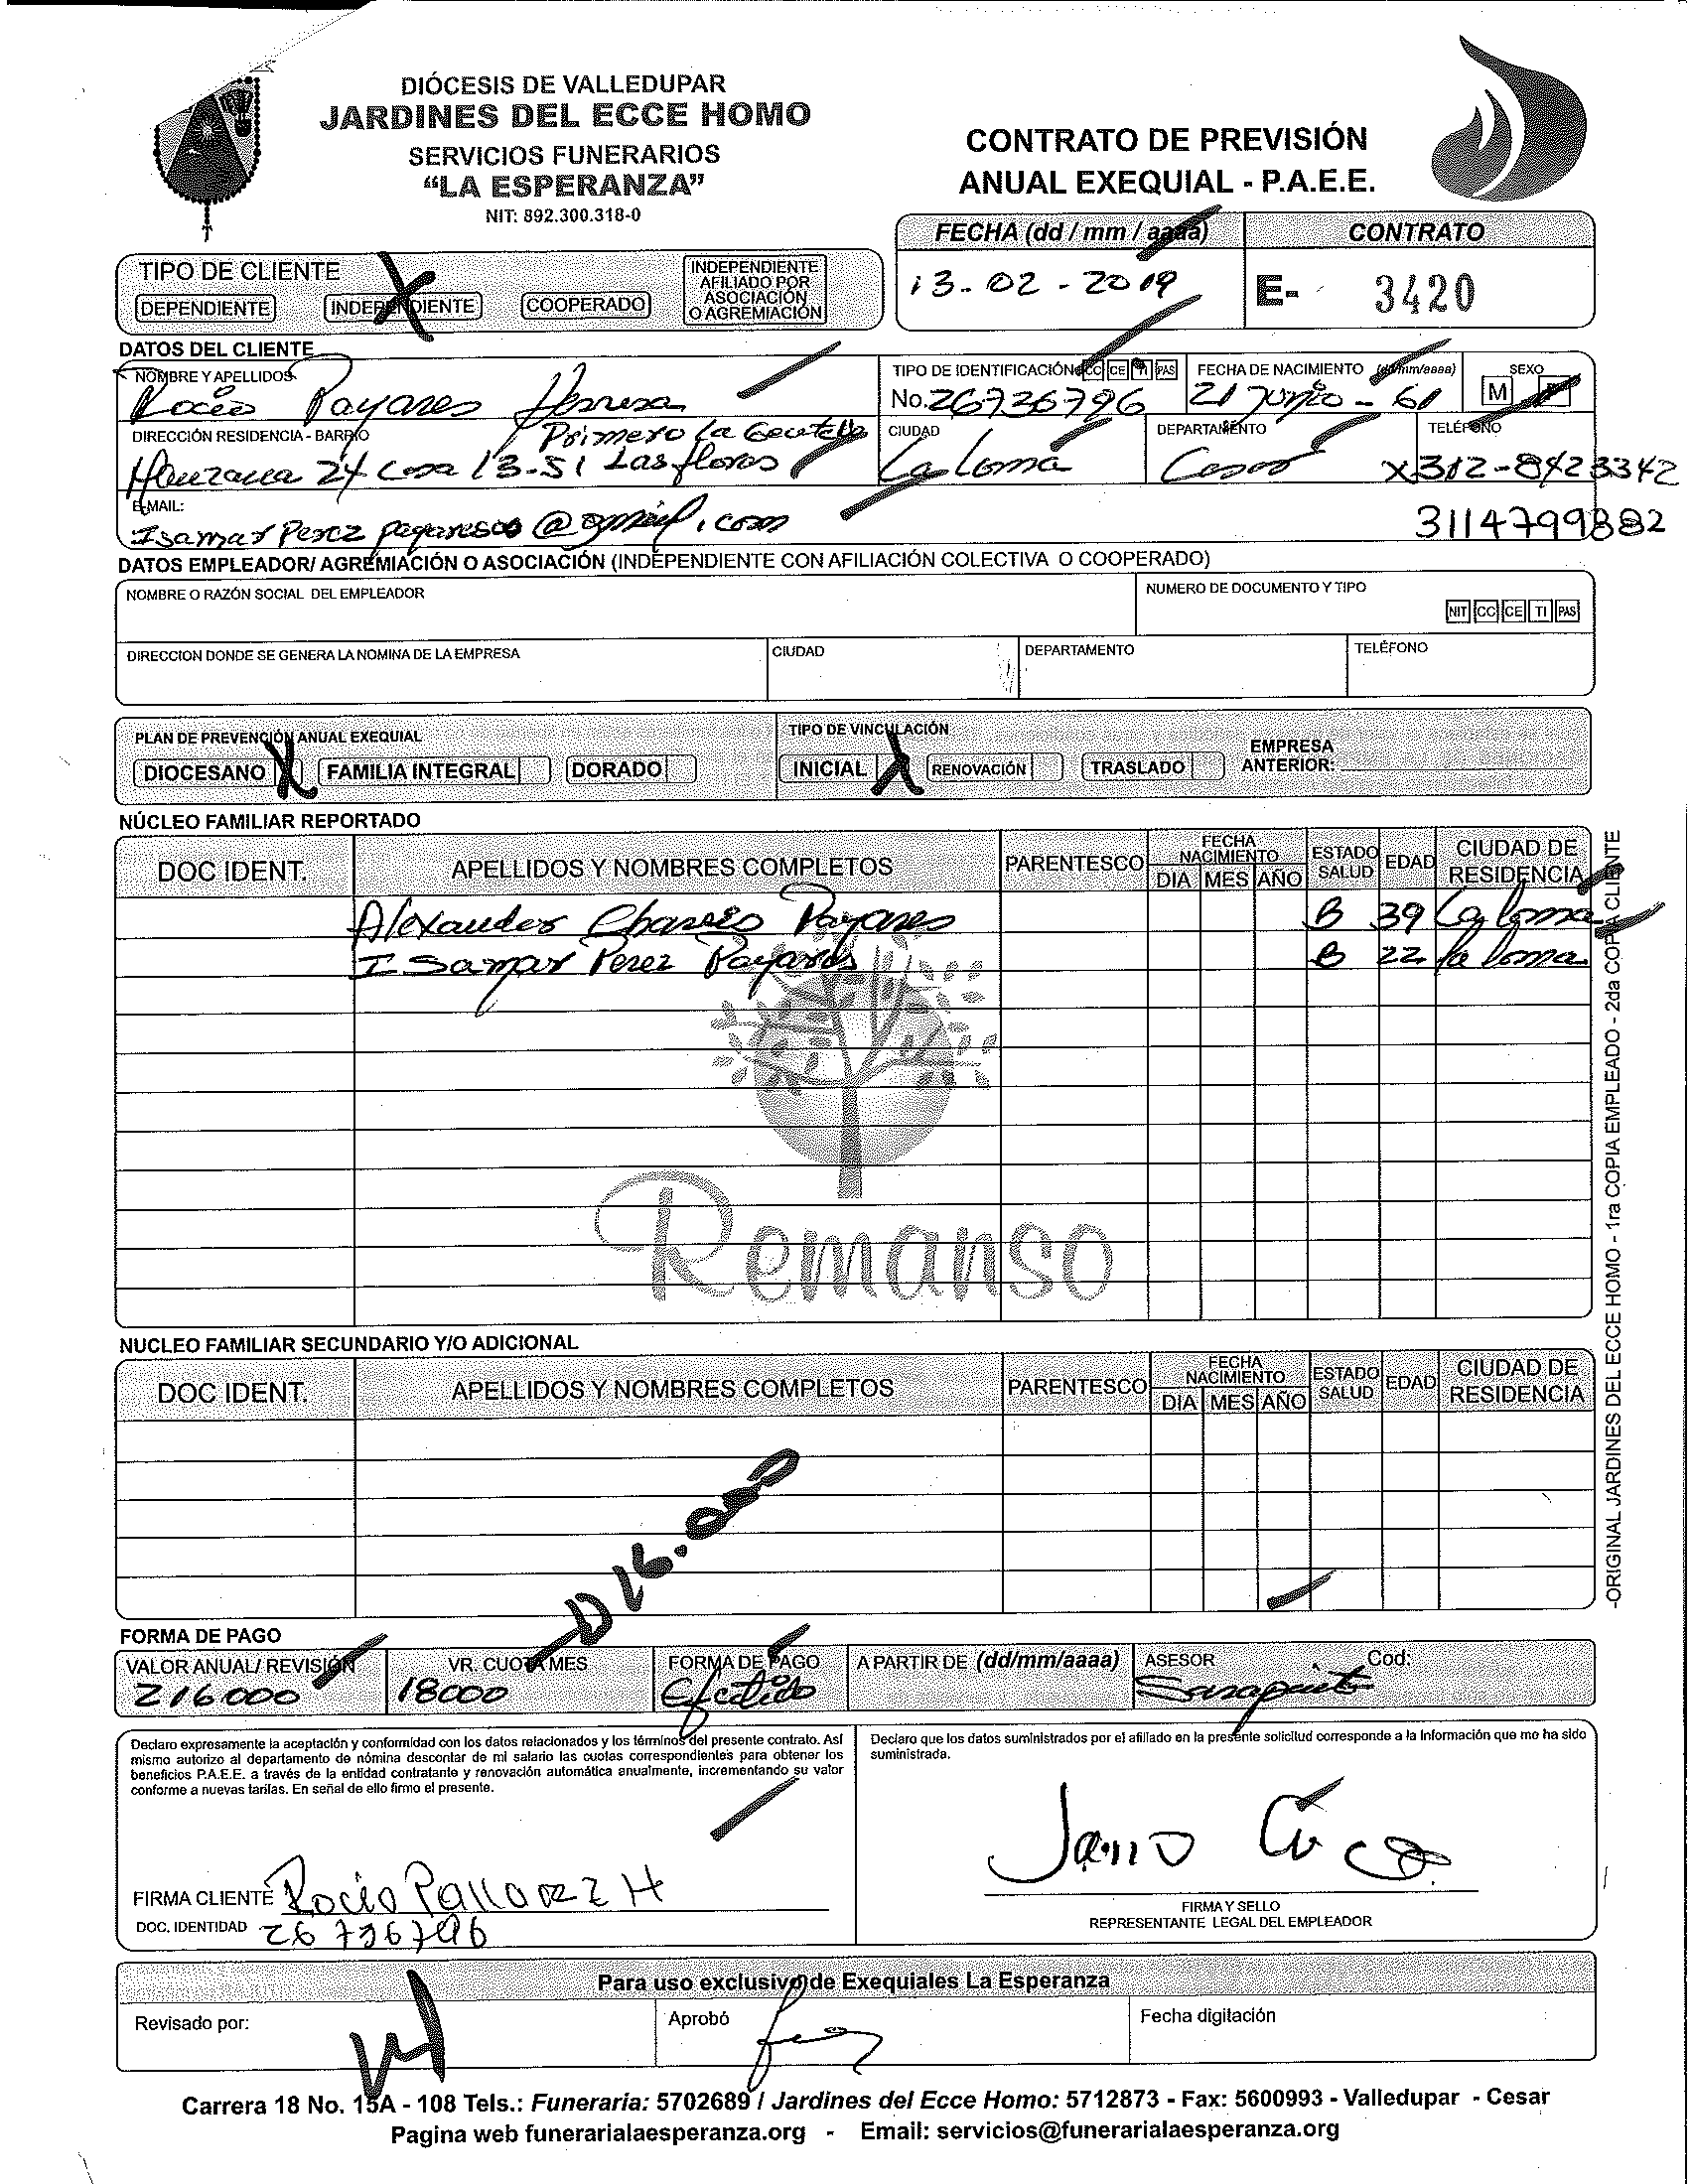 DIÓCESIS DE VALLEDUPAR
JARDINES DEL ECCE HOMO
SERVICIOS FUNERARIOS
“LA ESPERANZA”
NIT: 892.300.318-0
CONTRATO DE PREVISIÓN
ANUAL EXEQUIAL - P.A.E.E.
FECHA (dd / mm / aaaa) CONTRATO
13-02-2019 E- 3420
TIPO DE CLIENTE
DEPENDIENTE INDEPENDIENTE COOPERADO INDEPENDIENTE AFILIADO POR ASOCIACIÓN O AGREMIACIÓN
DATOS DEL CLIENTE
NOMBRE Y APELLIDOS TIPO DE IDENTIFICACIÓN CC CE TI PAS FECHA DE NACIMIENTO (dd/mm/aaaa) SEXO
Rocio Payares Herrera No. 26736796 21 Junio - 61 M
DIRECCIÓN RESIDENCIA - BARRIO Primero la CIUDAD DEPARTAMENTO TELÉFONO
Manzana 24 casa 13-51 Las flores La Loma Cesar X312-8423342
E-MAIL:
Isamar Perez @gmail.com 3114799882
DATOS EMPLEADOR/ AGREMIACIÓN O ASOCIACIÓN (INDEPENDIENTE CON AFILIACIÓN COLECTIVA O COOPERADO)
NOMBRE O RAZÓN SOCIAL DEL EMPLEADOR NUMERO DE DOCUMENTO Y TIPO
NIT CC CE TI PAS
DIRECCION DONDE SE GENERA LA NOMINA DE LA EMPRESA CIUDAD DEPARTAMENTO TELÉFONO
PLAN DE PREVENCIÓN ANUAL EXEQUIAL TIPO DE VINCULACIÓN
DIOCESANO X FAMILIA INTEGRAL DORADO INICIAL X RENOVACIÓN TRASLADO EMPRESA ANTERIOR:
NÚCLEO FAMILIAR REPORTADO
DOC IDENT. APELLIDOS Y NOMBRES COMPLETOS PARENTESCO FECHA NACIMIENTO DIA MES AÑO ESTADO SALUD EDAD CIUDAD DE RESIDENCIA
Alexander Charris Payares B 39 La loma
Isamar Perez Payares B 22 la loma
Remanso
NUCLEO FAMILIAR SECUNDARIO Y/O ADICIONAL
DOC IDENT. APELLIDOS Y NOMBRES COMPLETOS PARENTESCO FECHA NACIMIENTO DIA MES AÑO ESTADO SALUD EDAD CIUDAD DE RESIDENCIA
-ORIGINAL JARDINES DEL ECCE HOMO - 1ra COPIA EMPLEADO - 2da COPIA CLIENTE
FORMA DE PAGO
VALOR ANUAL/ REVISIÓN VR. CUOTA MES FORMA DE PAGO A PARTIR DE (dd/mm/aaaa) ASESOR Cod:
216000 18000 Efectivo
Declaro expresamente la aceptación y conformidad con los datos relacionados y los términos del presente contrato. Así
mismo autorizo al departamento de nómina descontar de mi salario las cuotas correspondientes para obtener los
beneficios P.A.E.E. a través de la entidad contratante y renovación automática anualmente, incrementando su valor
conforme a nuevas tarifas. En señal de ello firmo el presente.
Declaro que los datos suministrados por el afiliado en la presente solicitud corresponde a la Información que me ha sido
suministrada.
FIRMA CLIENTE Rocio Pallarez H
DOC. IDENTIDAD 26736796
FIRMA Y SELLO
REPRESENTANTE LEGAL DEL EMPLEADOR
Para uso exclusivo de Exequiales La Esperanza
Revisado por: Aprobó Fecha digitación
Carrera 18 No. 15A - 108 Tels.: Funeraria: 5702689 / Jardines del Ecce Homo: 5712873 - Fax: 5600993 - Valledupar - Cesar
Pagina web funerarialaesperanza.org - Email: servicios@funerarialaesperanza.org